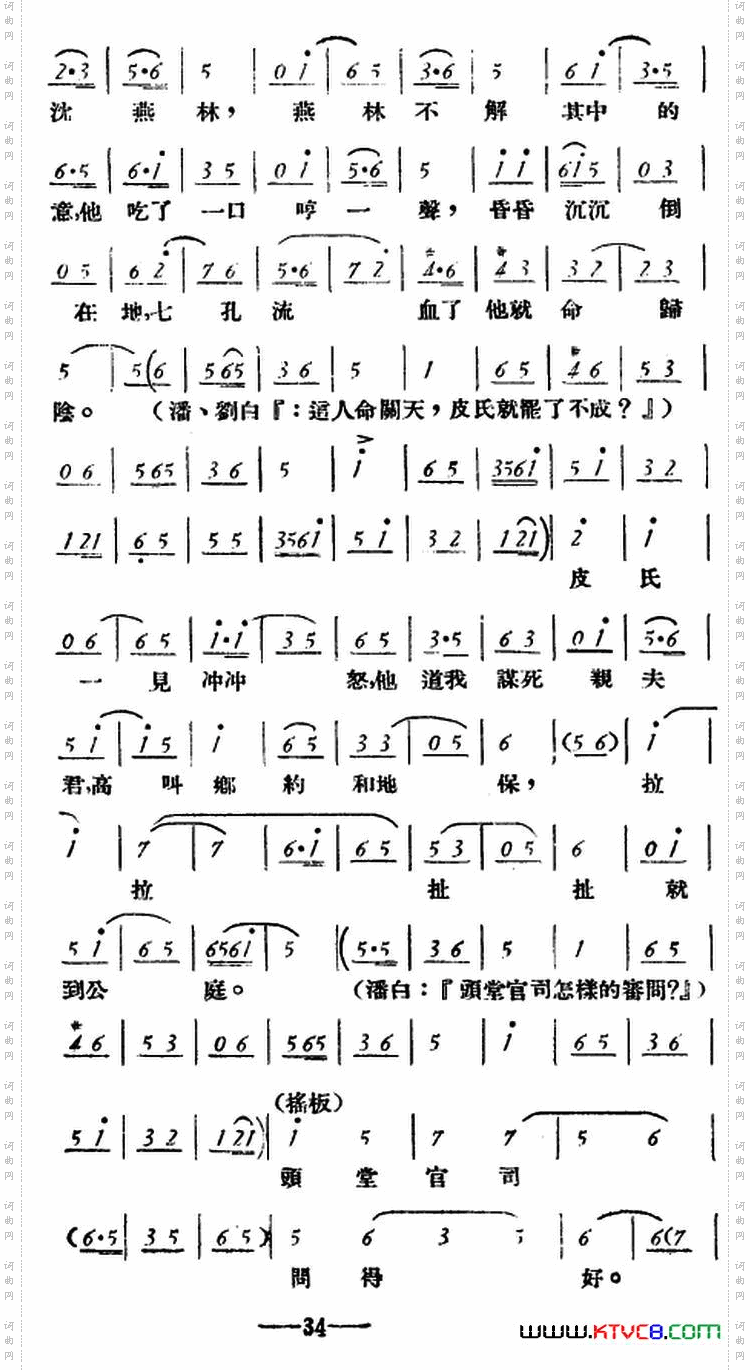 2·3 | 5·6 | 5 | 0 i | 6 5 | 3·6 | 5 | 6 i | 3·5 |
沈 燕 林， 燕 林 不 解 其中 的
6·5 | 6·i | 3 5 | 0 i | 5·6 | 5 | i i | 6i5 | 0 3 |
意,他 吃了 一口 哼 一 聲， 昏昏 沉沉 倒
0 5 | 6 2 | 7 6 | 5·6 | 7 2 | #4·6 | #4 3 | 3 2 | 2 3 |
在 地,七 孔 流 血了 他就 命 歸
5 | 5(6 | 565 | 3 6 | 5 | 1 | 6 5 | #4 6 | 5 3 |
陰。 （潘、劉白『：這人命關天，皮氏就罷了不成？』）
0 6 | 565 | 3 6 | 5 | i | 6 5 | 356i | 5 i | 3 2 |
121 | 6 5 | 5 5 | 356i | 5 i | 3 2 | 121) | 2 | i |
皮 氏
0 6 | 6 5 | i·i | 3 5 | 6 5 | 3·5 | 6 3 | 0 i | 5·6 |
一 見 冲冲 怒,他 道我 謀死 親 夫
5 i | i 5 | i | 6 5 | 3 3 | 0 5 | 6 | (5 6) | i |
君,高 叫 鄉 約 和地 保， 拉
i | 7 | 7 | 6·i | 6 5 | 5 3 | 0 5 | 6 | 0 i |
拉 扯 扯 就
5 i | 6 5 | 656i | 5 | (5·5 | 3 6 | 5 | 1 | 6 5 |
到公 庭。 （潘白：『頭堂官司怎樣的審問?』）
#4 6 | 5 3 | 0 6 | 565 | 3 6 | 5 | i | 6 5 | 3 6 |
（搖板）
5 i | 3 2 | 121) | i 5 | 7 7 | 5 6 |
頭 堂 官 司
(6·5 | 3 5 | 6 5) | 5 6 3 5 | 6 | 6(7 |
問 得 好。
—34—
www.KTVC8.com